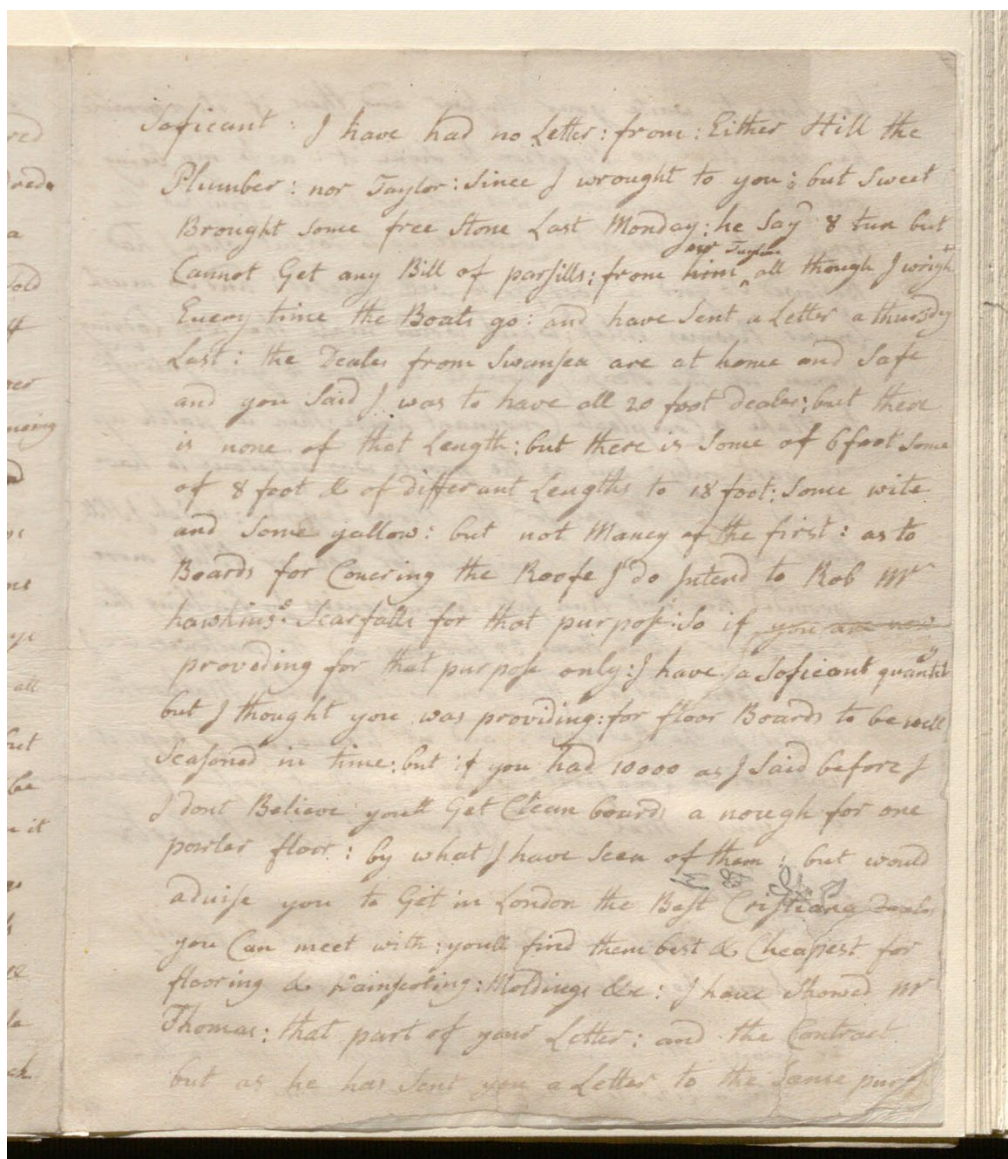 Soficant : I have had no Letter : from : Either Hill the
Plumber : nor Taylor : Since I wrought to you ; but Sweet
Brought some free Stone Last Monday ; he Say 8 tun but
Cannot Get any Bill of parsills ; from him nor Taylor all though I wrigh
Every time the Boats go : and have Sent a Letter a thursdy
Last : the Deales from Swansea are at home and Safe
and you Said I was to have all 20 foot deales ; but there
is none of that Length : but there is Some of 6 foot Some
of 8 foot & of differant Lengths to 18 foot : Some wite
and Some yallow : but not Maney of the first : as to
Boards for Covering the Roofe I do Intend to Rob Mr
hawkins: Scarfalls for that purpose : So if you are now
proveding for that purpose only : I have a Soficant quantity
but I thought you was providing : for floor Boards to be well
Seasoned in time ; but if you had 10000 as I Said before I
I dont Believe youll Get Clean boards a nough for one
powler floor : by what I have Seen of them ; but would
advise you to Get in London the Best Cristiana Deales
you Can meet with ; youll find them best & Cheapest for
flooring & Wainscoting : Moldings &c : I have Showed Mr
Thomas ; that part of your Letter ; and the Contract
but as he has Sent you a Letter to the Same purpos
red
a
old
ver
all
be
it